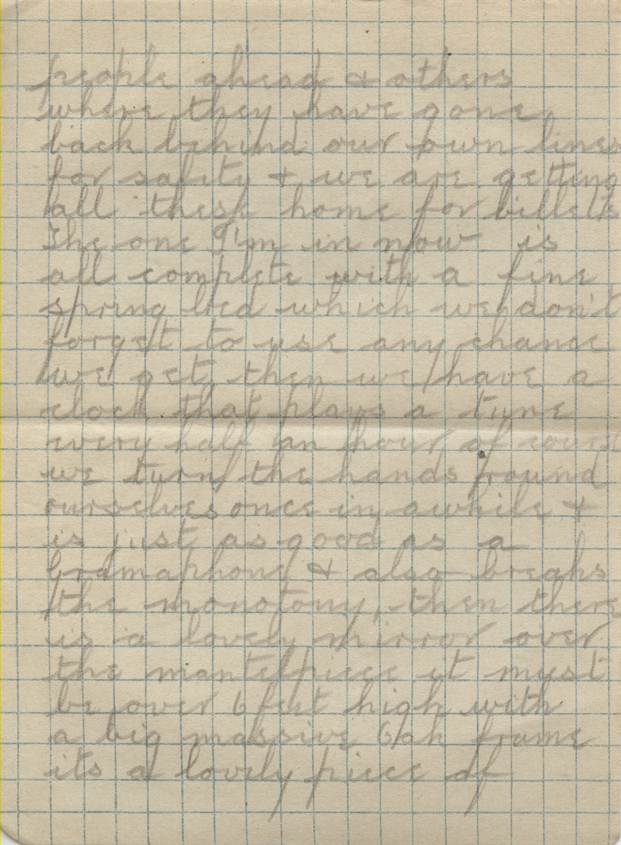 people ahead & others
where they have gone
back behind our own lines
for safity & we are getting
all these home for billets
The one I'm in now is
all complete with a fine
spring bed which we don't
forget to use any chance
we get, then we have a
clock that plays a tune
every half an hour, of course
we turn the hands round
ourselves once in awhile &
is just as good as a
Gramaphone & also breaks
the monotony, then there
is a lovely mirror over
the mantelpiece it must
be over 6 feet high with
a big massive Oak frame
its a lovely piece of